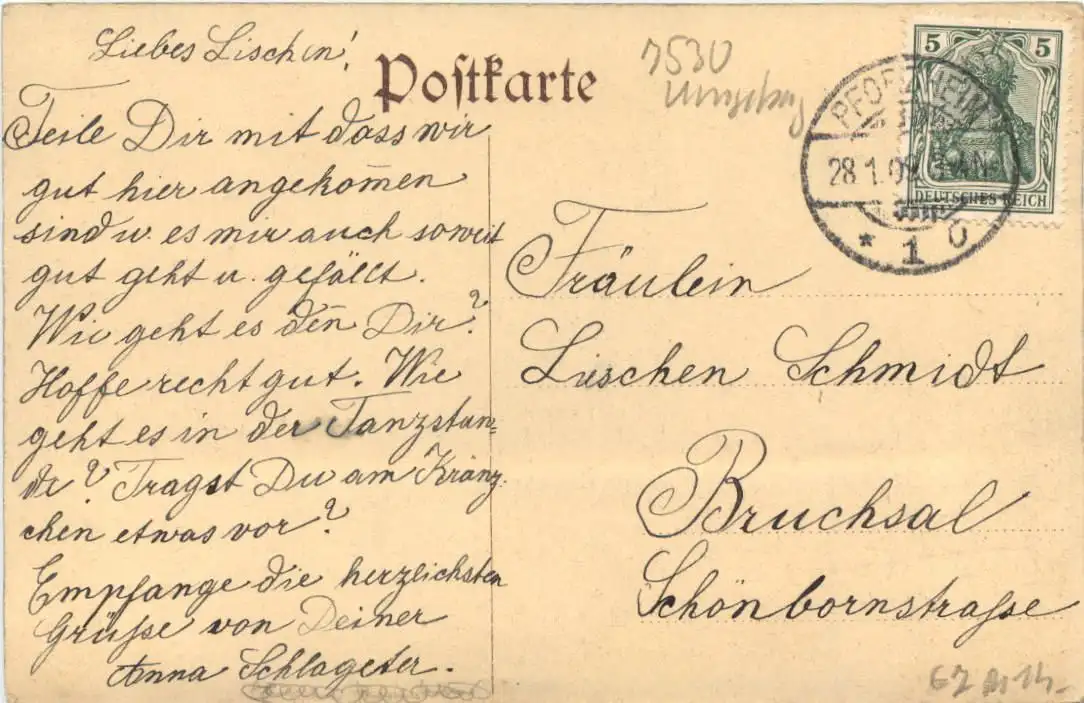 Liebes Lischen!
Postkarte
7530
Umgebung
Teile Dir mit dass wir
gut hier angekom̄en
sind u. es mir auch soweit
gut geht u. gefällt.
Wie geht es den̄ Dir?
Hoffe recht gut. Wie
geht es in der Tanzstun=
de? Tragst Du am Kränz-
chen etwas vor?
Empfange die herzlichsten
Grüße von Deiner
Anna Schlageter.
5 5
DEUTSCHES REICH
PFORZHEIM
28.1.09.
* 1 O
Fräulein
Lieschen Schmidt
Bruchsal
Schönbornstraße